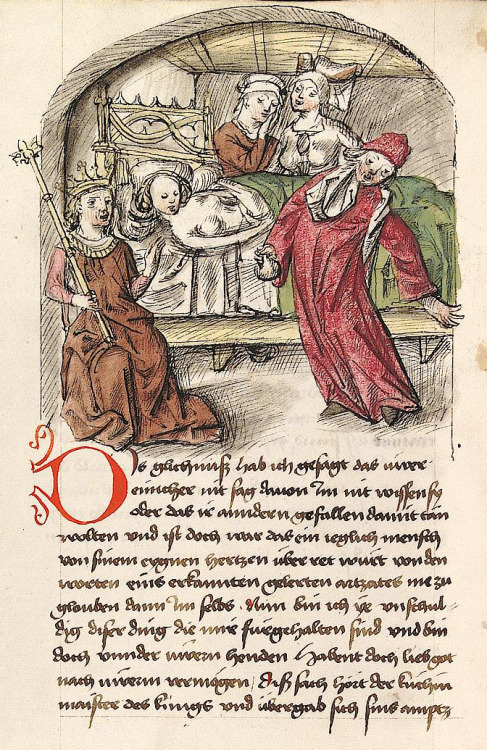 Dis glichnusz hab ich gesagt das iuwer
einicher nit sag dauon Im nit wissen sy
oder das ir anndern gefallen damit tün
wolten vnd ist doch war das ein ieglich mensch
von sinem eygnen hertzen über ret würt von den
worten eins erkannten gelerten artzates me zu
glouben dann Im selbs . Nun bin ich ye vnschul=
dig diser ding die mir fürgehalten sind vnd bin
doch vnnder iuwern henden Habent doch lieb got
nach iuwerm vermögen / Disz sach hort der kuchin
maister des künigs vnd übergab sich sins amptz